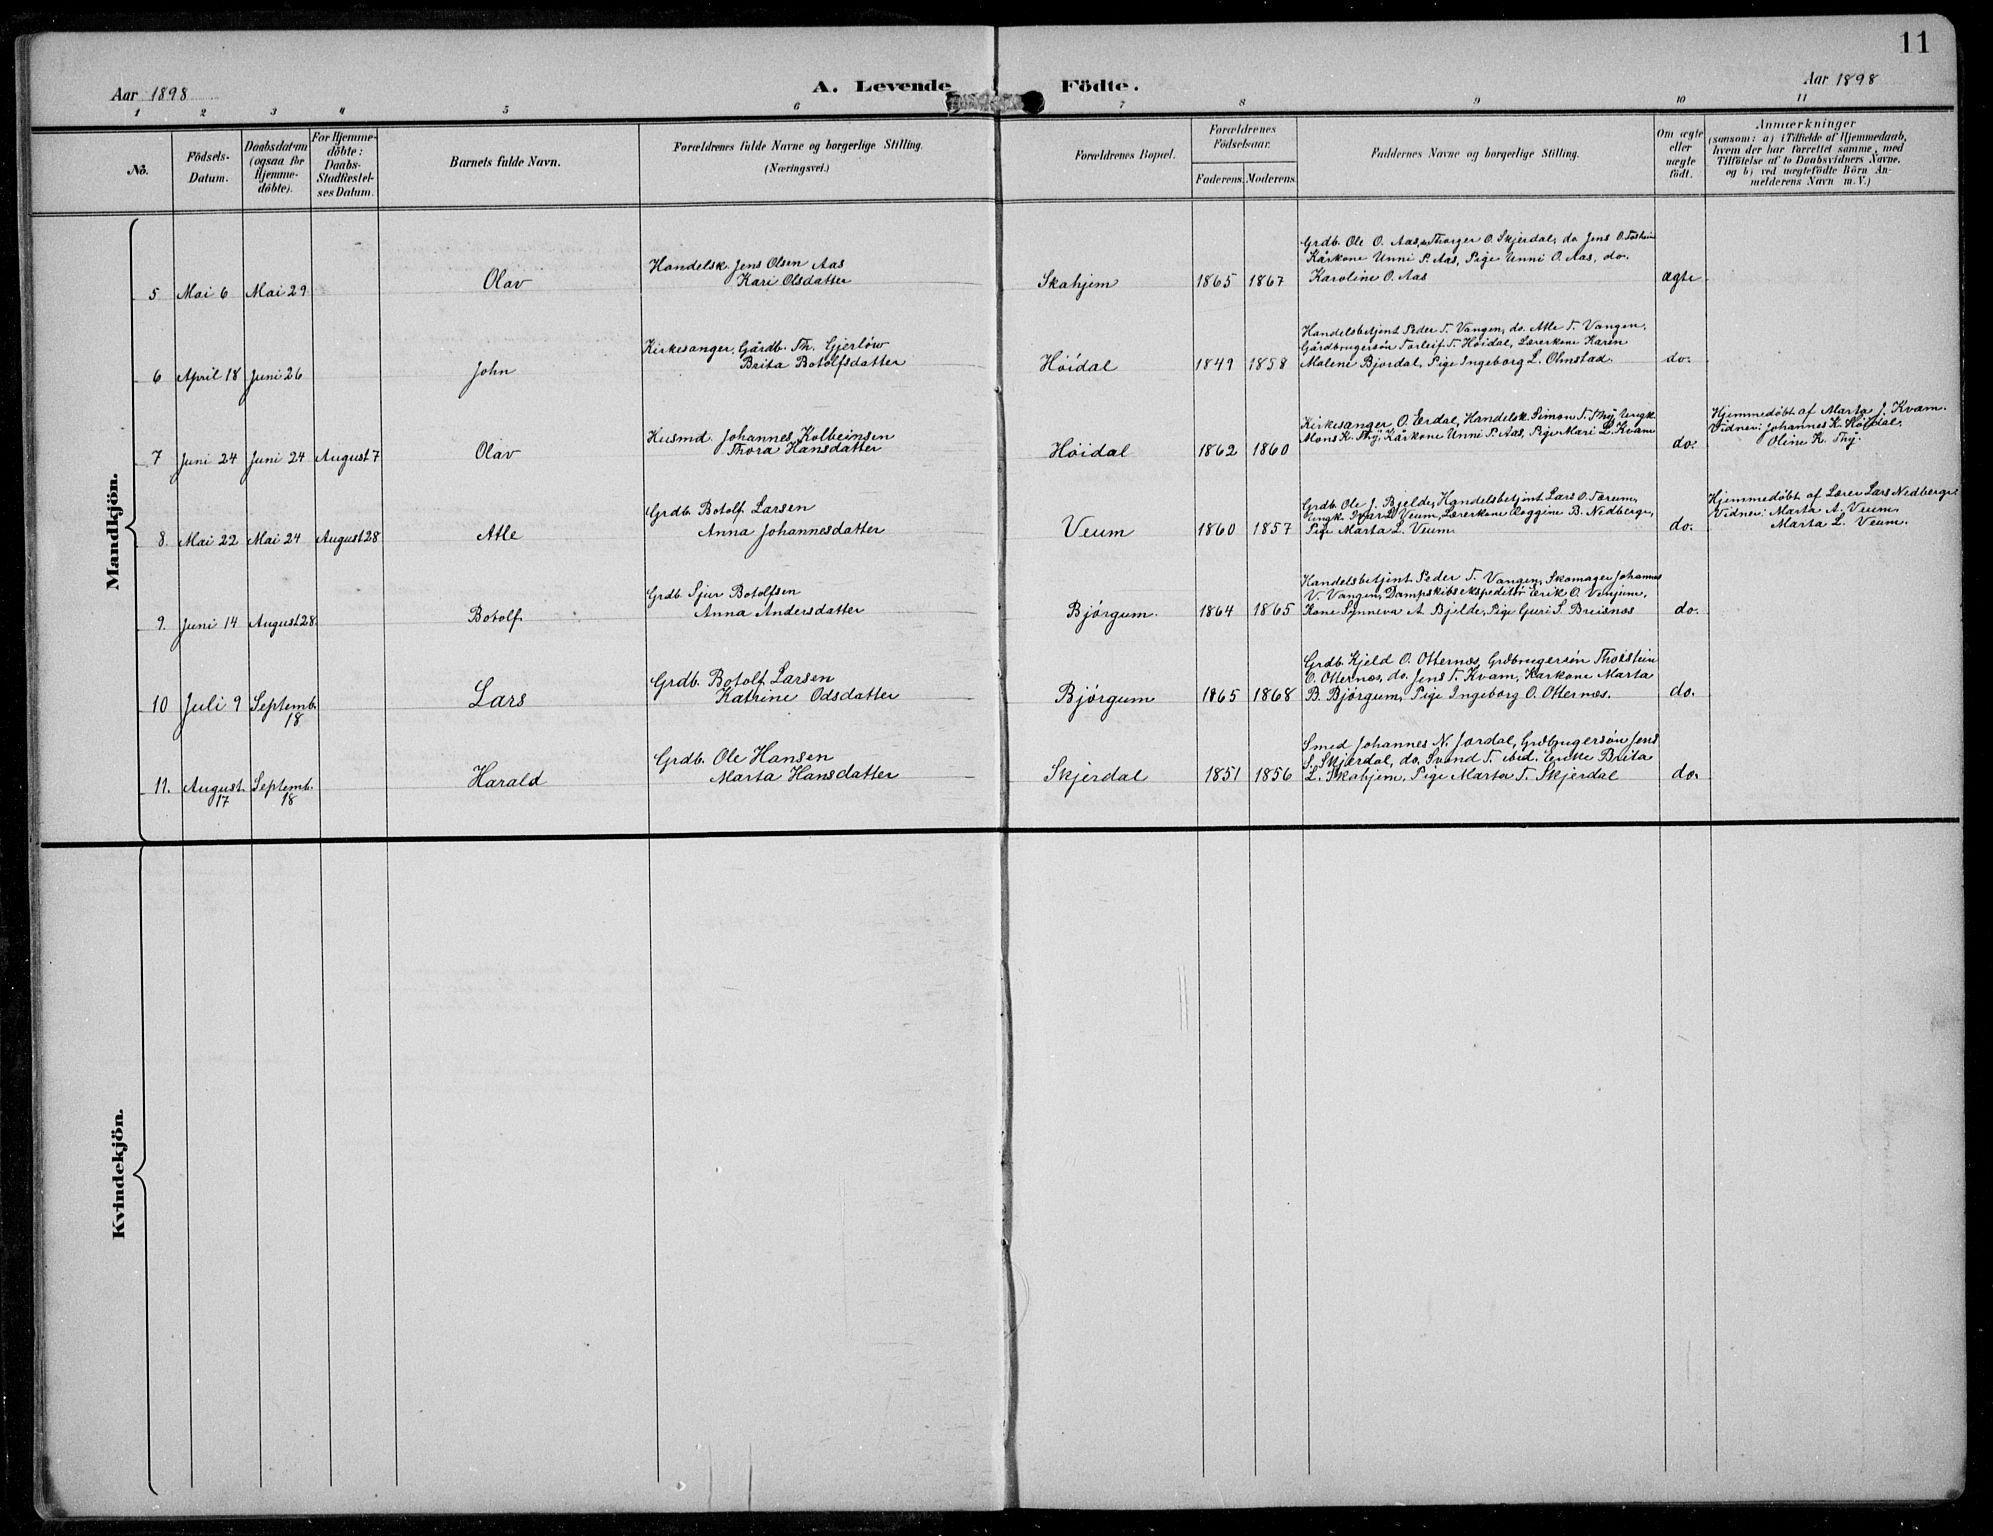 11
Aar 1898
A. Levende Födte.
Aar 1898
1 2 3 4 5 6 7 8 9 10 11
No.
Födsels-
Datum.
Daabsdatum
(ogsaa for
Hjemme-
döbte).
For Hjemme-
döbte:
Daabs-
Stadfæstel-
ses Datum.
Barnets fulde Navn.
Forældrenes fulde Navne og borgerlige Stilling.
(Næringsvei.)
Forældrenes Bopæl.
Forældrenes
Födselsaar.
Faderens. Moderens.
Faddernes Navne og borgerlige Stilling.
Om ægte
eller
uægte
födt.
Anmærkninger
(saasom: a) i Tilfælde af Hjemmedaab,
hvem der har forrettet samme, med
Tilföielse af to Daabsvidners Navne.
og b) ved uægtefödte Börn An-
melderens Navn m. V.)
Mandkjön.
5 Mai 6 Mai 29 Olav
Handelsk. Jens Olsen Aas
Kari Olsdatter
Skahjem 1865 1867
Grdb. Ole O. Aas, Thorger O. Skjerdal, do Jens O.
Kårkone Unni P. Aas, Pige Unni O. Aas, do.
Karoline O. Aas
ægte
6 April 18 Juni 26 John
Kirkesanger, Gårdb. Th. Gjerlöw
Brita Botolfsdatter
Höidal 1849 1858
Handelsbetjent Peder T. Vangen, do. Atle T. Vangen,
Gårdbrugersön Torleif T. Höidal, Lærerkone Karen
Malene Bjordal, Pige Ingeborg L. Ohnstad.
do.
7 Juni 24 Juni 24 August 7 Olav
Husmd. Johannes Kolbeinsen
Thora Hansdatter
Höidal 1862 1860
Kirkesanger O. Erdal, Handelsk. Simon T. Thy, Ungk.
Mons K. Thy, Kårkone Unni P. Aas, Pige Mari L. Kvam
do.
Hjemmedöbt af Marta J. Kvam.
Vidner: Johannes K. Höidal,
Oline K. Thy.
8. Mai 22 Mai 24 August 28 Atle
Grdb. Botolf Larsen
Anna Johannesdatter
Veum 1860 1857
Grdb. Ole J. Bjelde, Handelsbetjent Lars O. Tærum,
Ungk. Ivar L. Veum, Lærerkone B. Nedberge,
Pige Marta L. Veum.
do.
Hjemmedöbt af Lærer Lars Nedberge
Vidner: Marta A. Veum,
Marta L. Veum.
9. Juni 14 August 28 Botolf
Grdb. Sjur Botolfsen
Anna Andersdatter
Björgum. 1864 1865
Handelsbetjent Peder T. Vangen, Skomager Johannes
V. Vangen, Dampskibsekspeditör Erik O. Vinjum,
Kone Synneva A. Bjelde, Pige Guri S. Breisnæs
do.
10 Juli 9 Septemb. 18 Lars
Grdb. Botolf Larsen
Katrine Odsdatter
Björgum 1865 1868
Grdb. Kjeld O. Otternæs, Grdbrugersön Thorstein
O. Otternæs, do. Jens T. Kvam, Kårkone Marta
B. Björgum, Pige Ingeborg O. Otternæs.
do.
11. August 17 Septemb. 18 Harald
Grdb. Ole Hansen
Marta Hansdatter
Skjerdal 1851 1856
Smed Johannes N. Jordal, Grdbrugersön Jens
S. Skjerdal, do. Svend T. ibid. Enke Brita
L. Skahjem, Pige Marta T. Skjerdal
do.
Kvindekjön.